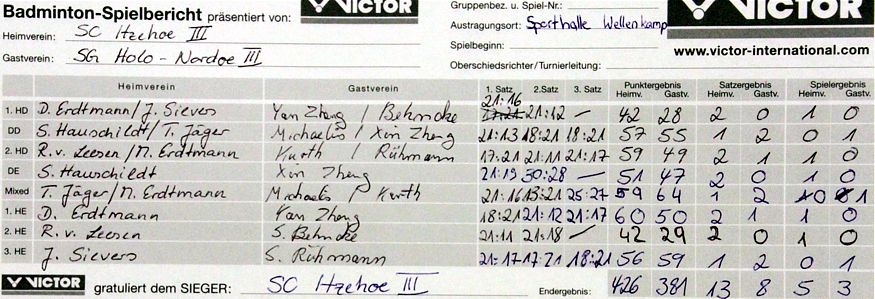 Badminton-Spielbericht präsentiert von: VICTOR
Gruppenbez. u. Spiel-Nr.:
VICTOR
Heimverein: SC Itzehoe III
Austragungsort: Sporthalle Wellenkamp
Gastverein: SG Holo - Nordoe III
Spielbeginn:
www.victor-international.com
Oberschiedsrichter/Turnierleitung:
Heimverein Gastverein 1. Satz 2. Satz 3. Satz Punktergebnis Satzergebnis Spielergebnis
Heimv. Gastv. Heimv. Gastv. Heimv. Gastv.
1. HD D. Erdtmann/J. Sievers Yan Zheng / Behncke 21:16 21:12 — 42 28 2 0 1 0
DD S. Hauschildt/T. Jäger Michaelis / Xin Zheng 21:13 18:21 18:21 57 55 1 2 0 1
2. HD R. v. Leesen/M. Erdtmann Kurth / Rühmann 17:21 21:11 21:17 59 49 2 1 1 0
DE S. Hauschildt Xin Zheng 21:19 30:28 — 51 47 2 0 1 0
Mixed T. Jäger/M. Erdtmann Michaelis / Kurth 21:16 13:21 25:27 59 64 1 2 0 1
1. HE D. Erdtmann Yan Zheng 18:21 21:12 21:17 60 50 2 1 1 0
2. HE R. v. Leesen S. Behncke 21:11 21:18 — 42 29 2 0 1 0
3. HE J. Sievers S. Rühmann 21:17 17:21 18:21 56 59 1 2 0 1
VICTOR gratuliert dem SIEGER: SC Itzehoe III Endergebnis: 426 381 13 8 5 3